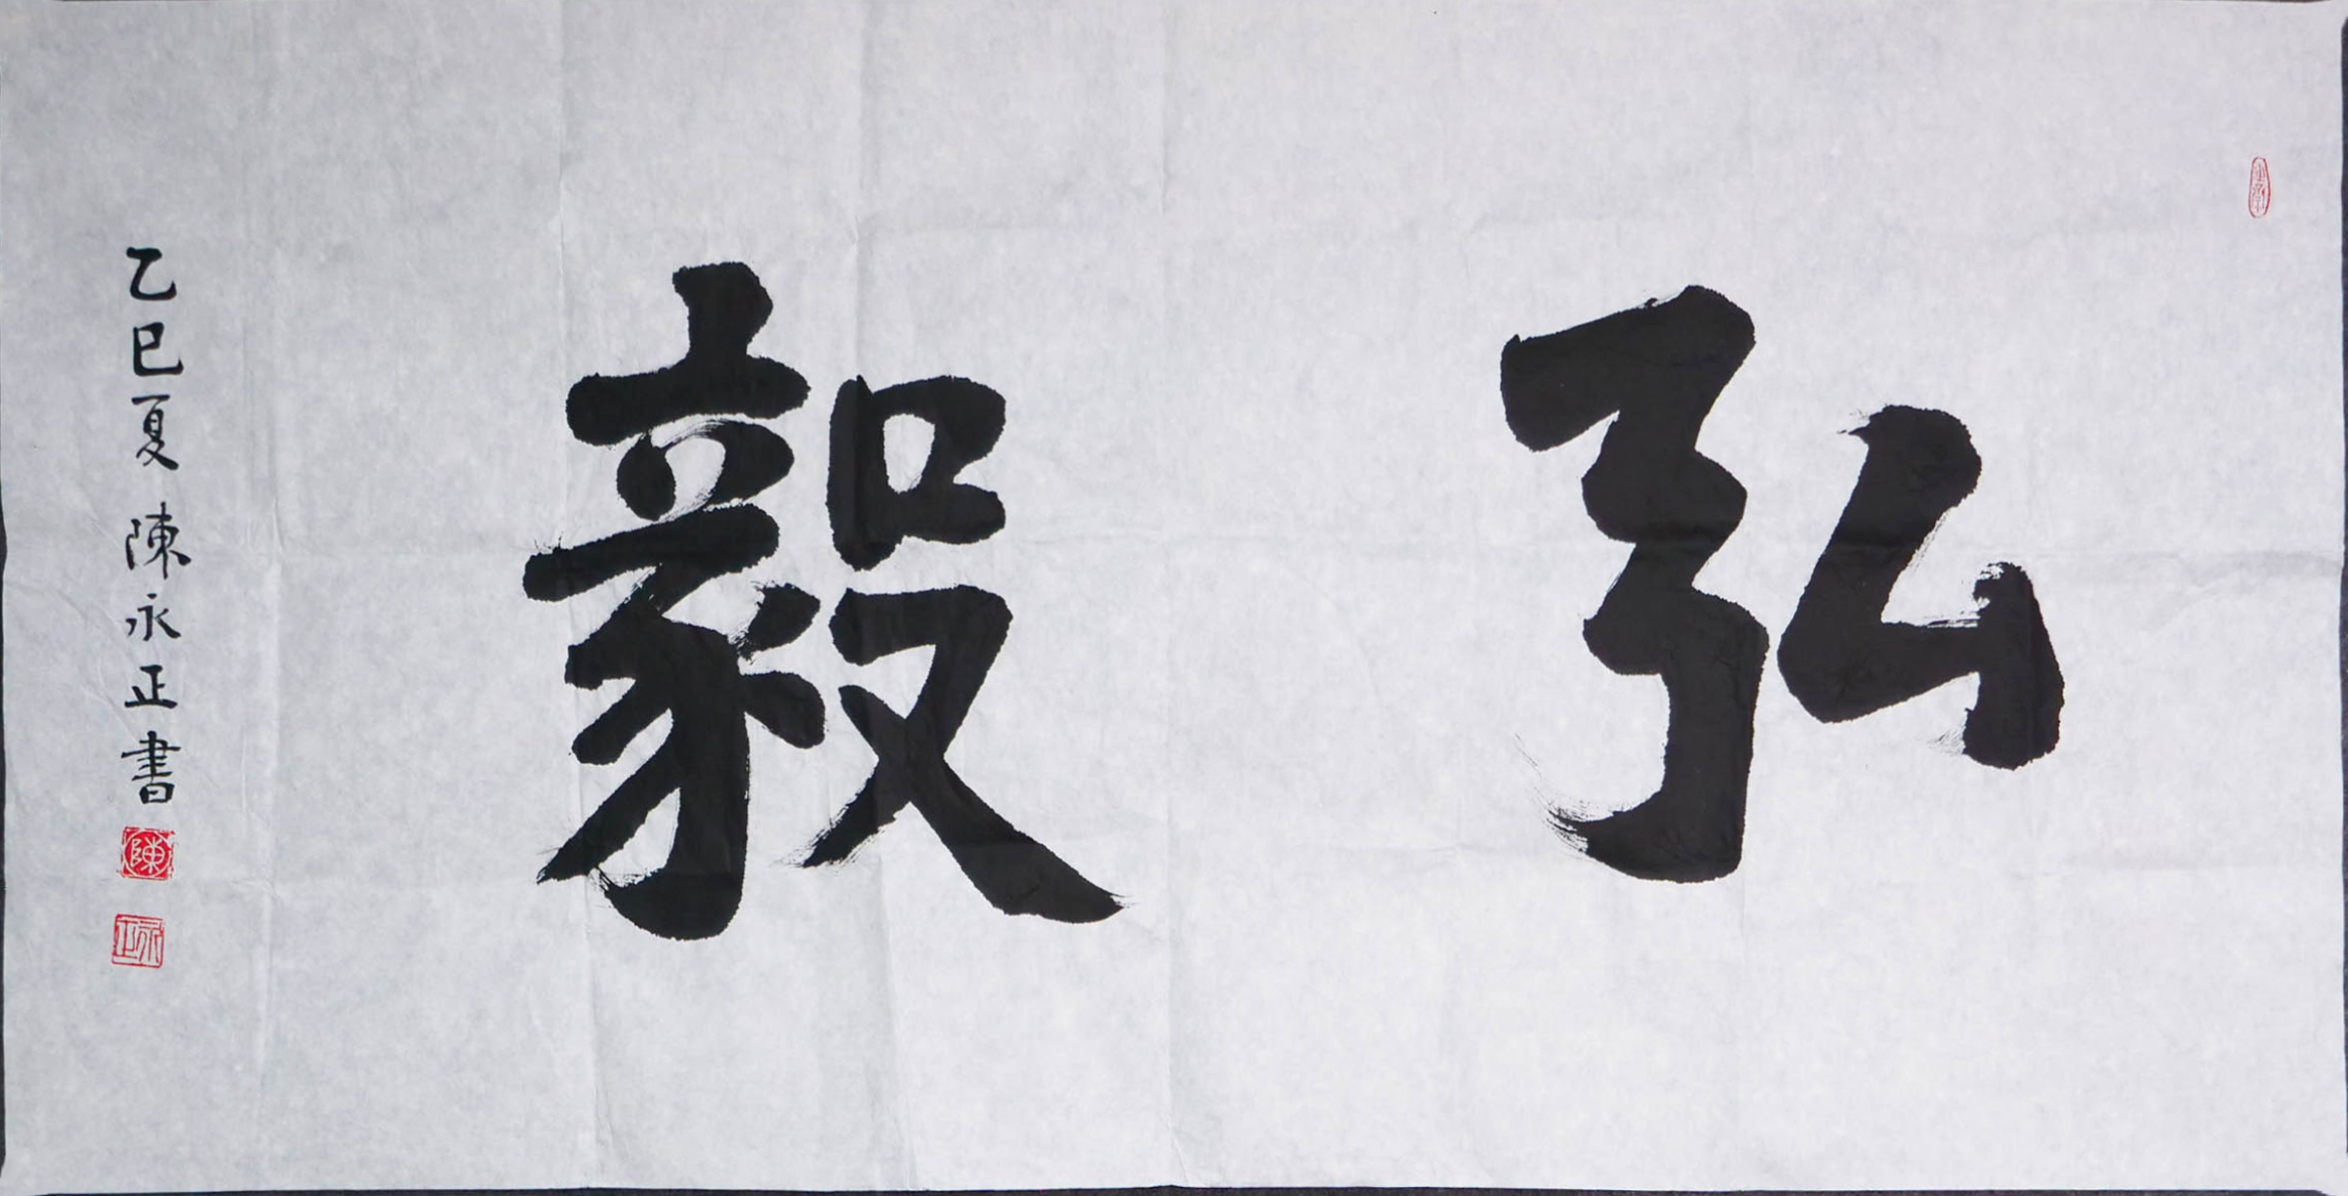 弘毅
乙巳夏 陳永正書
陳
永正